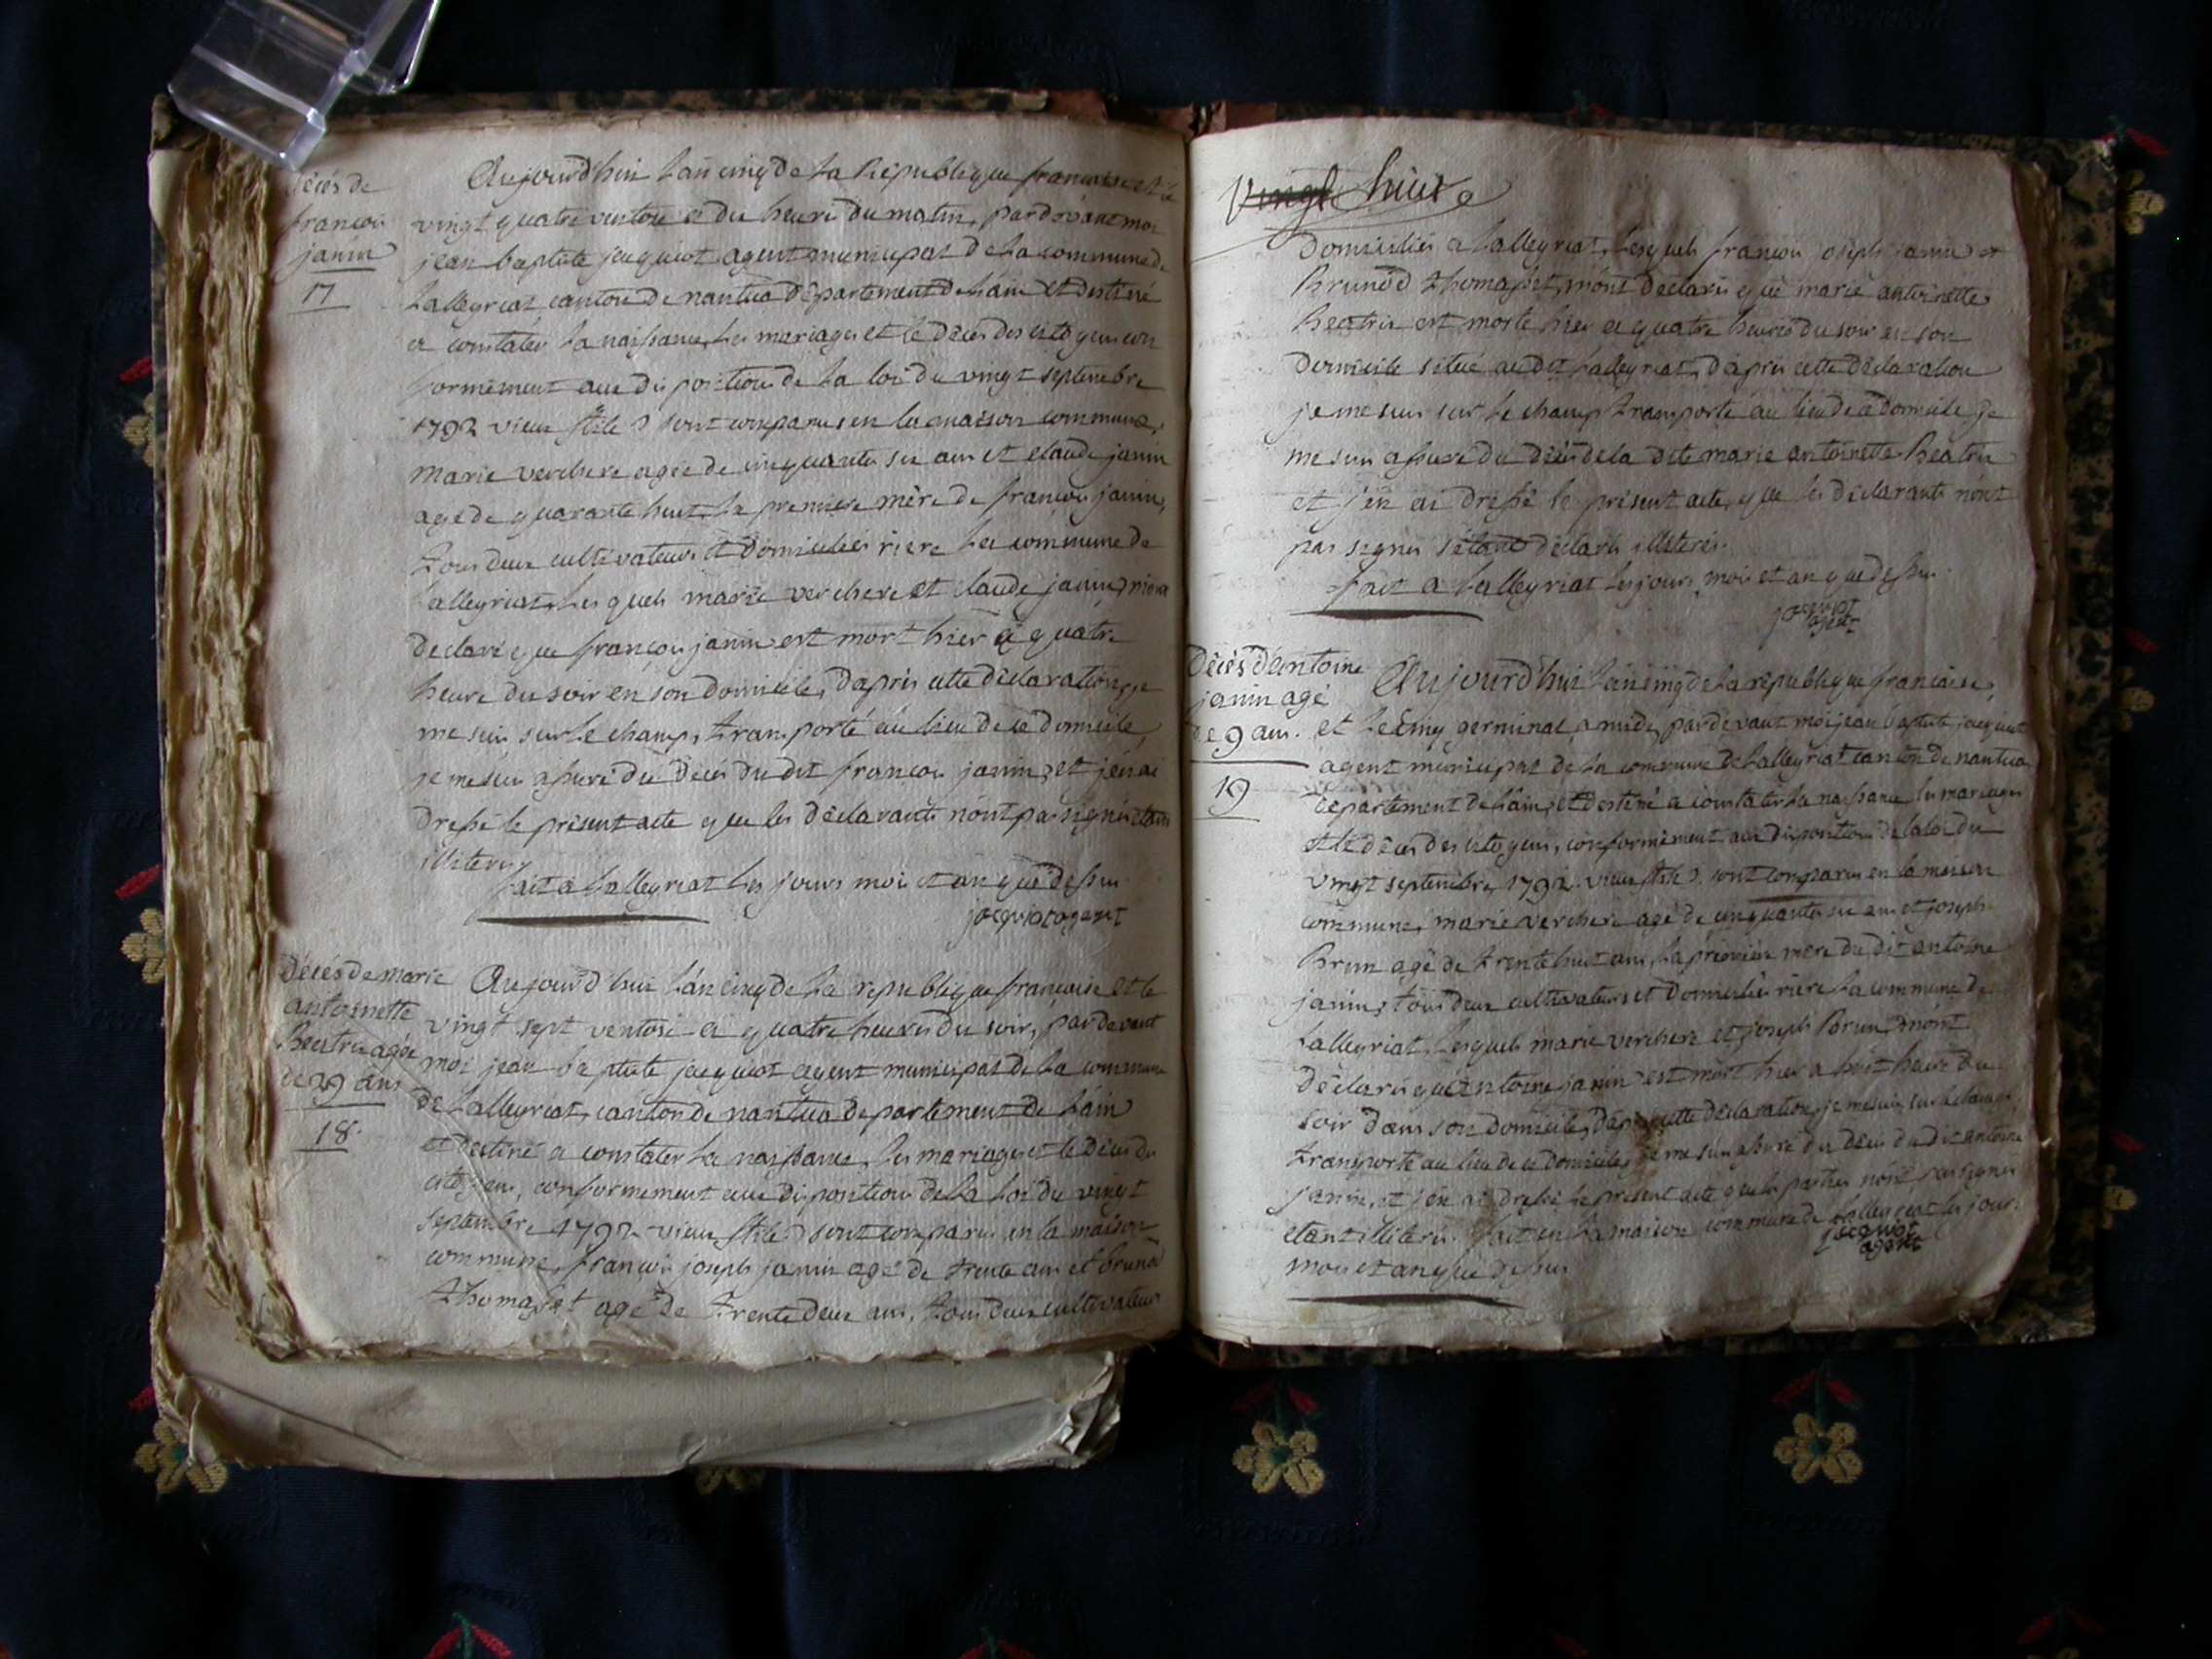 décès de
francois
janin
17
Aujourd'hui l'an cinq de la République francaise et le
vingt quatre ventose a dix heures du matin, pardevant moi
jean baptiste jacquiot agent municipal de la commune de
Lalleyriat canton de nantua département de l'ain et destiné
a constater la naissance, les mariages et le décès des citoyens con
formément aux dispositions de la loi du vingt septembre
1792 vieux stile) sont comparus en la maison commune,
marie verchere agée de cinquante six ans et claude janin
agé de quarante huit, la premiere mère de francois janin,
tous deux cultivateurs et domiciliés riere la commune de
Lalleyriat, lesquels marie verchere et claude janin m'ont
declaré que francois janin est mort hier a quatre
heure du soir en son domicile, d'après cette déclaration, je
me suis sur le champ, transporté au lieu de ce domicile,
je me suis assuré du décès du dit francois janin, et j'en ai
dressé le présent acte que les déclarants n'ont pas signés étants
illiterés
fait a Lalleyriat les jours mois et an que dessus
jacquiot agent
Décés de marie
antoinette
Beatrix agée
de 29 ans
18
Aujourd'hui l'an cinq de la republique francaise et le
vingt sept ventose a quatre heures du soir, pardevant
moi jean baptiste jacquiot agent municipal de la commune
de Lalleyriat, canton de nantua departement de l'ain
et destiné a constater la naissance, les mariages et le décès des
citoyens, conformement aux dispositions de la loi du vingt
septembre 1792 vieux stile) sont comparus en la maison
commune, francois joseph janin agé de trente ans et brunod
thomasset agé de trente deux ans, tous deux cultivateurs
Vingt huit
domiciliés a Lalleyriat, lesquels francois joseph janin et
Brunod thomasset, m'ont déclarés que marie antoinette
Beatrix est morte hier a quatre heures du soir en son
domicile situé au dit Lalleyriat, d'après cette déclaration
je me suis sur le champ transporté au lieu de ce domicile, je
me suis assuré du décès de la dite marie antoinette Beatrix
et j'en ai dressé le présent acte, que les déclarants n'ont
pas signés s'étant déclarés illiterés.
fait a Lalleyriat les jours, mois et an que dessus.
jacquiot
agent
Décès d'antoine
janin agé
de 9 ans.
19
Aujourd'hui l'an cinq de la republique francaise,
et le cinq germinal, a midi, pardevant moi jean baptiste jacquiot
agent municipal de la commune de Lalleyriat canton de nantua
departement de l'ain, et destiné a constater la naissance, les mariages
et le décès des citoyens, conformément aux dispositions de la loi du
vingt septembre 1792. vieux stile) sont comparus en la maison
commune, marie verchere agé de cinquante six ans et joseph
Brun agé de trente huit ans, la premiere mere du dit antoine
janin, tous deux cultivateurs et domiciliés riere la commune de
Lalleyriat, lesquels marie verchere et joseph Brun, m'ont
déclarés que antoine janin est mort hier a huit heure du
soir dans son domicile, d'après cette déclaration, je me suis sur le champ
transporté au lieu de ce domicile, je me suis assuré du décès du dit antoine
janin, et j'en ai dressé le présent acte que les parties n'ont pas signés
etant illiterés. fait en la maison commune de Lalleyriat les jours
mois et an que dessus
jacquiot
agent